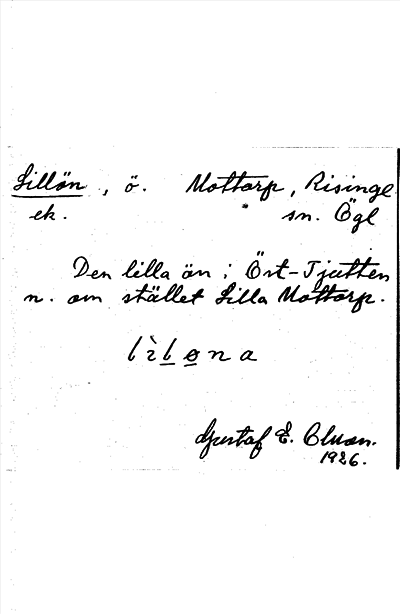 Lillön, ö. Mottorp, Risinge
ek. sn. Ögl
Den lilla ön i Öst-Tjutten
n. om stället Lilla Mottorp.
lìløna
Gustaf E. Cluon.
1926.